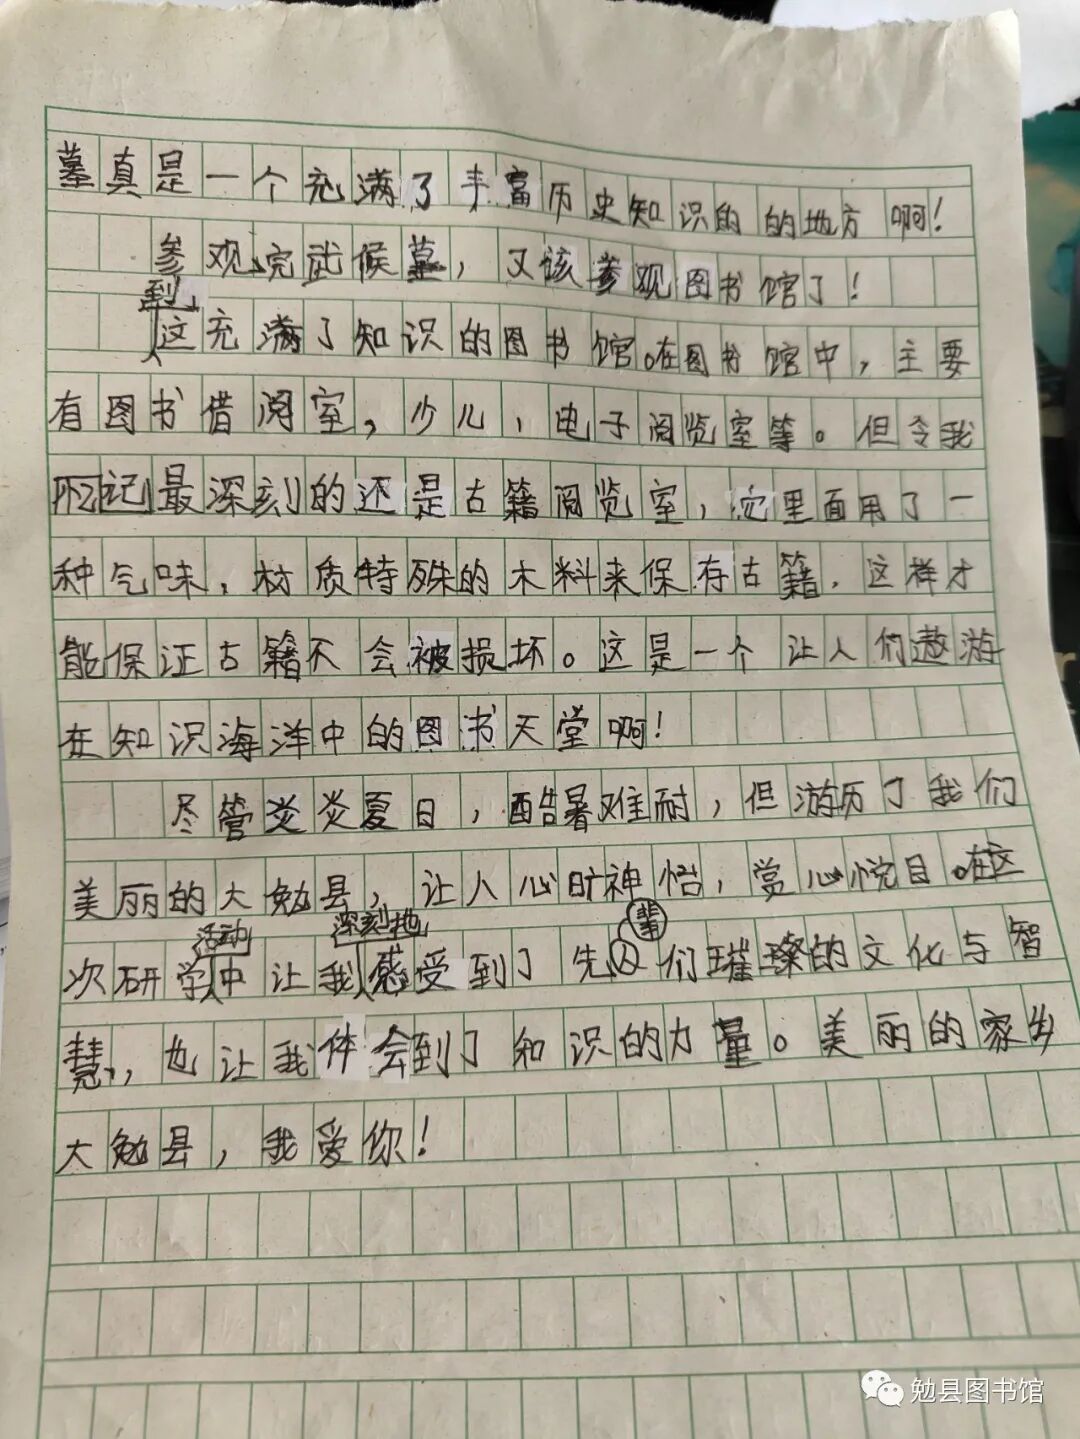 墓真是一个充满了丰富历史知识的的地方啊！
参观完武候墓，又该参观图书馆了！
到
这充满了知识的图书馆。在图书馆中，主要
有图书借阅室，少儿，电子阅览室等。但令我
记最深刻的还是古籍阅览室，它里面用了一
种气味，材质特殊的木料来保存古籍，这样才
能保证古籍不会被损坏。这是一个让人们遨游
在知识海洋中的图书天堂啊！
尽管炎炎夏日，酷暑难耐，但游历了我们
美丽的大勉县，让人心旷神怡，赏心悦目。在这
活动 深刻地 辈
次研学中让我感受到了先人们璀璨的文化与智
慧，也让我体会到了知识的力量。美丽的家乡
大勉县，我爱你！
勉县图书馆